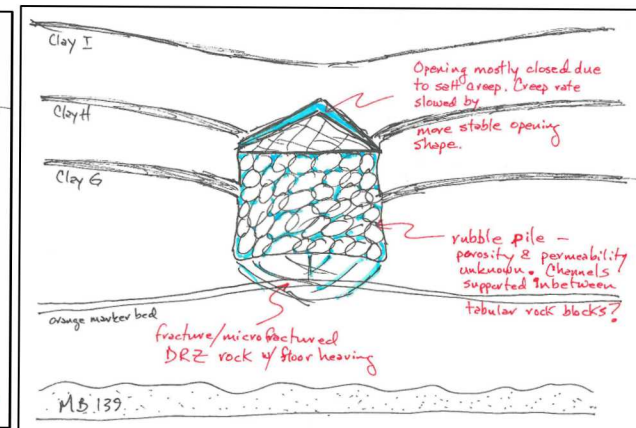 Clay I
Opening mostly closed due
to salt creep. Creep rate
slowed by
more stable opening
shape.
Clay H
Clay G
rubble pile –
porosity & permeability
unknown. Channels
supported inbetween
tabular rock blocks?
orange marker bed
fracture/microfractured
DRZ rock w/ floor heaving
MB 139